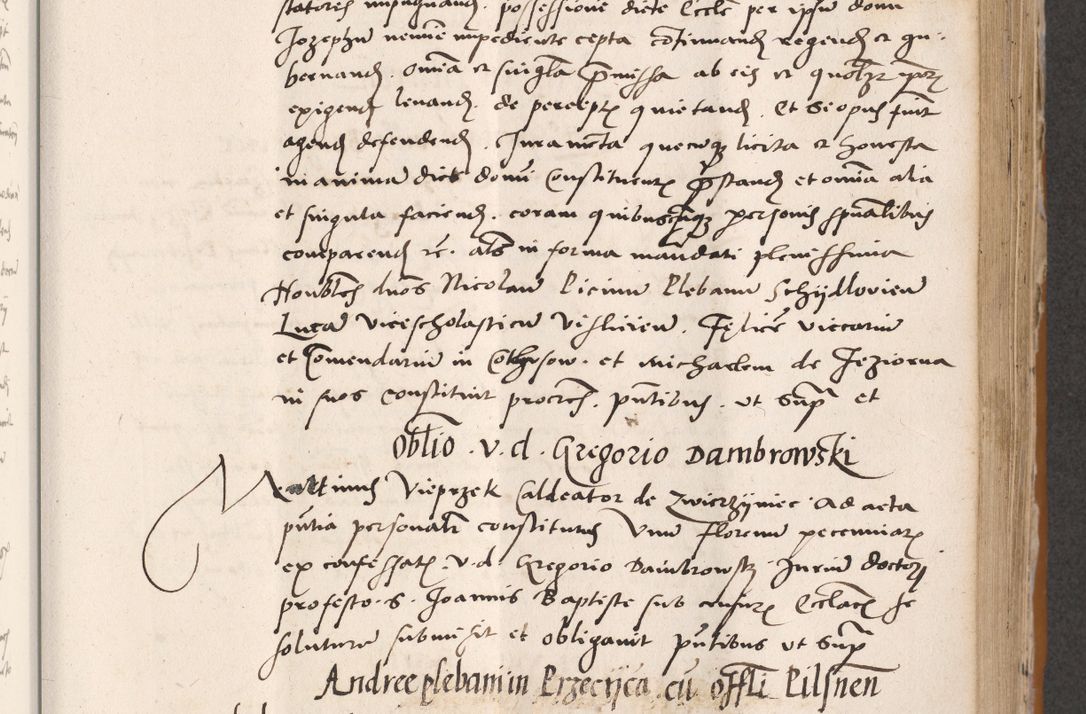 statores impugnand. possessione dicte Eccle per ipsu donu
Jozephu nemie impediente cepta cotinuand regend et gu-
bernand. omia et singla pmissa ab eis et quolzr ipor
exigend levand. de perceptz quietand. Et Se opus fuit
agend defendend. Juramēta quecuqz licita et honesta
in anima dicti domi Constituentz pstand et omia alia
et singula faciend. coram quibuscuqz personis spualibus
comparend rē. als in forma mandati plenissima
Honbles duos Nicolau Picinu Plebanu Schijdloviēn
Lucā Vicescholasticu Vislicien. Felicē viccariu
et Comendariu in Cothsow. et michaelem de Jeziorna
in suos constituit procres. pntibus. ut Supra et
Oblio. v. d. Gregorio Dambrowski
Martinus Vieprzek Caldeator de Zwierzijniec. Ad acta
pntia personalr constitutus Vnu florenu pecuniarz
ex confessatz v. d. Gregorio Dambrowskj Juriu doctorj
profesto. S. Joannis Baptiste sub censurz Ecclacz se
soluturū submisit et obligavit pntibus ut Supra
Andree plebani in Przeczijca cu offli Pilsnen